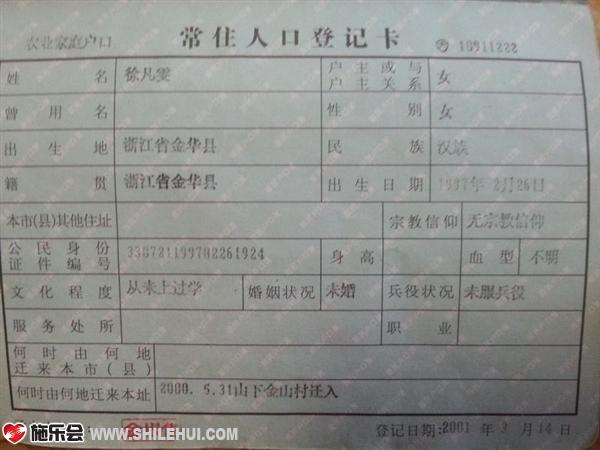 农业家庭户口 常住人口登记卡 10911222
姓名 徐凡雯 户主或与户主关系 女
曾用名 性别 女
出生地 浙江省金华县 民族 汉族
籍贯 浙江省金华县 出生日期 1997年2月26日
本市(县)其他住址 宗教信仰 无宗教信仰
公民身份证件编号 330721199702261924 身高 血型 不明
文化程度 从未上过学 婚姻状况 未婚 兵役状况 未服兵役
服务处所 职业
何时由何地迁来本市(县)
何时由何地迁来本址 2000. 5.31山下金山村迁入
登记日期:2001 年 3 月 14 日.
施乐会 www.SHILEHUI.COM